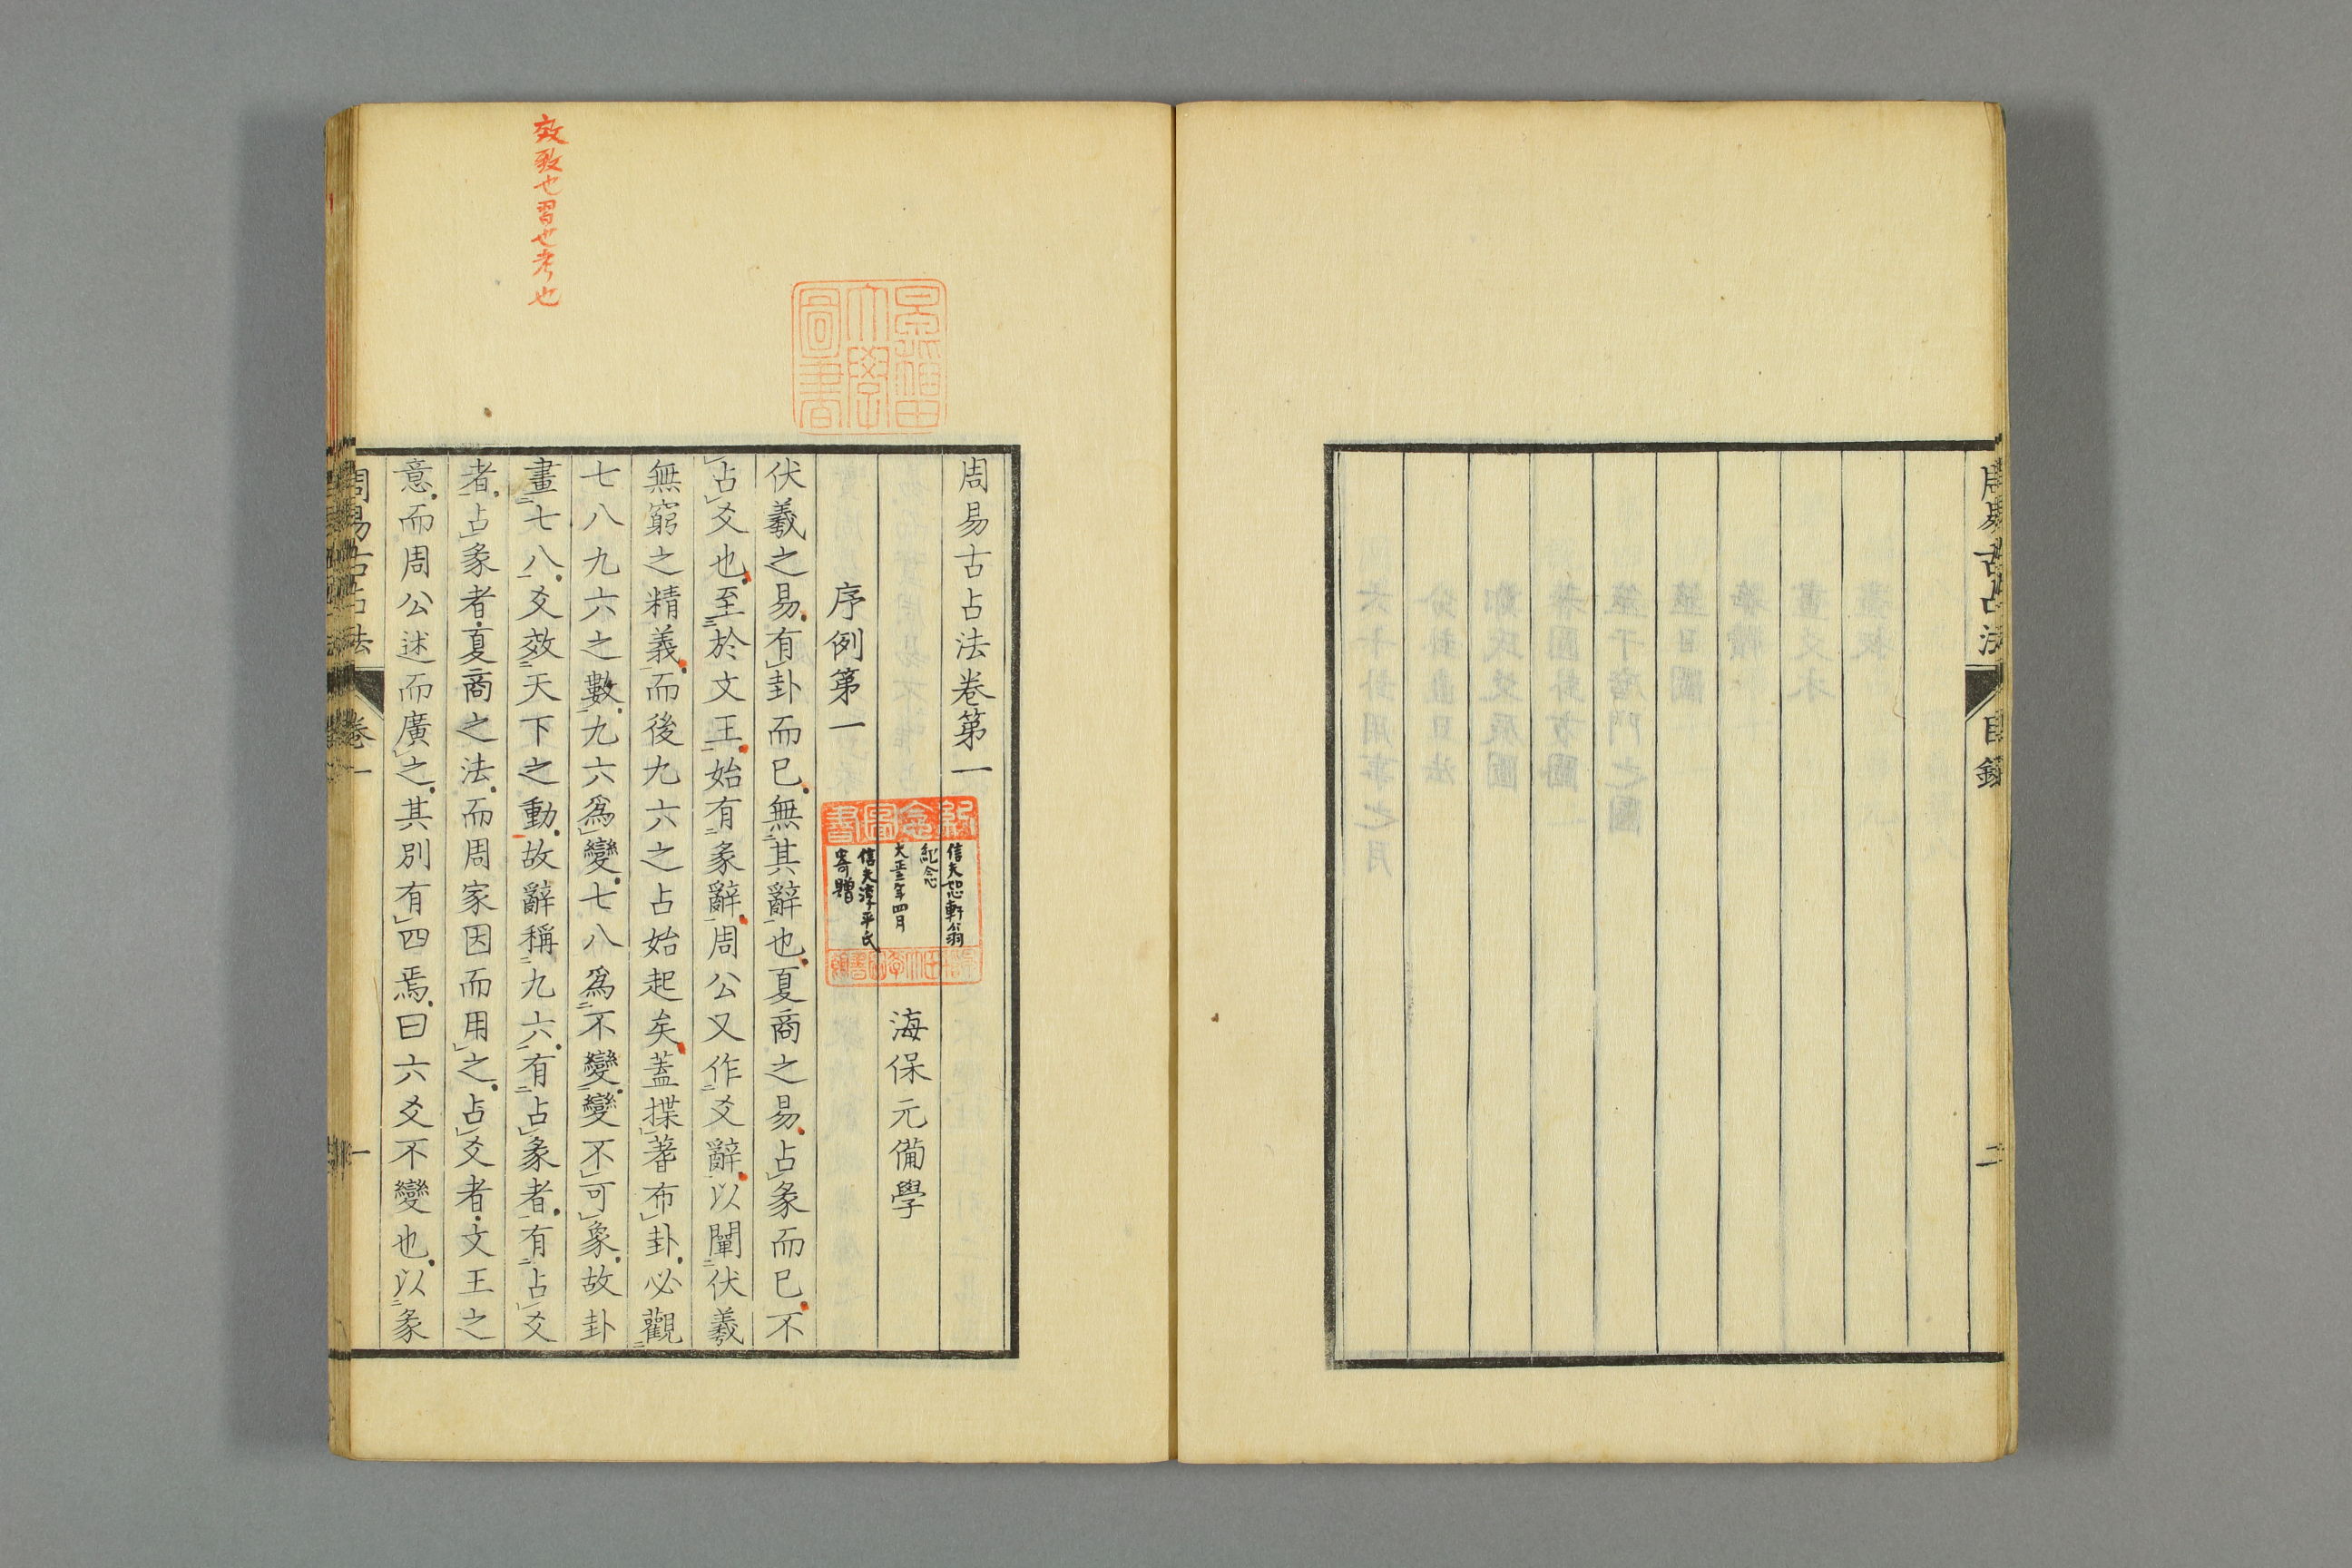 周易古占法
目錄
二
周易古占法卷第一
海保元備學
序例第一
伏羲之易有卦而已無其辭也夏商之易占彖而已不
占爻也至於文王始有彖辭周公又作爻辭以闡伏羲
無窮之精義而後九六之占始起矣蓋揲蓍布卦必觀
七八九六之數九六爲變七八爲不變變不可象故卦
畫七八爻效天下之動故辭稱九六有占彖者有占爻
者占彖者夏商之法而周家因而用之占爻者文王之
意而周公述而廣之其別有四焉曰六爻不變也以彖
效致也習也考也
早稻田大學圖書
紀念圖書
信夫恕軒翁
紀念
大正三年四月
信夫淳平氏
寄贈
周易古占法
卷一
一